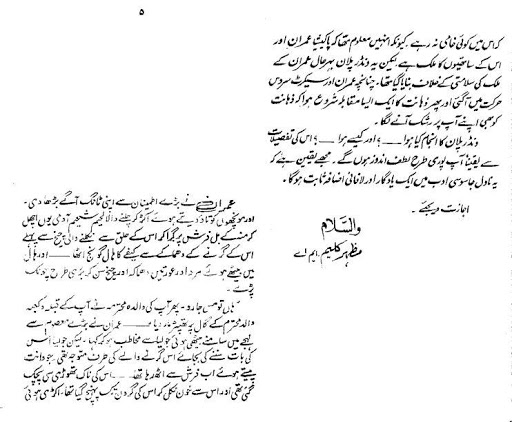 کہ اس میں کوئی خامی نہ رہے کیونکہ انہیں معلوم تھا کہ پاکیشیا عمران اور
اس کے ساتھیوں کا ملک ہے لیکن یہ ونڈر پلان بہرحال عمران کے
ملک کی سلامتی کے خلاف بنایا گیا تھا۔ چنانچہ عمران اور سیکرٹ سروس
حرکت میں آ گئی اور پھر ذہانت کا ایک ایسا مقابلہ شروع ہوا کہ ذہانت
کو بھی اپنے آپ پر رشک آنے لگا۔
ونڈر پلان کا انجام کیا ہوا ـــ؟ اور کیسے ہوا ـــ؟ اس کی تفصیلات
سے یقیناً آپ پوری طرح لطف اندوز ہوں گے۔ مجھے یقین ہے کہ
یہ ناول جاسوسی ادب میں ایک یادگار اور لافانی اضافہ ثابت ہو گا۔
اجازت دیجئے۔
والسَّلام
مظہر کلیم ایم اے
۵
عمران نے بڑے اطمینان سے اپنی ٹانگ آگے بڑھا دی۔
اور مونچھوں کو تاؤ دیتے ہوئے اکڑ کر چلنے والا لحیم شحیم آدمی یوں اچھل
کر منہ کے بل فرش پر گرا کہ اس کے حلق سے نکلنے والی چیخ سے پہلے
اس کے گرنے کے دھماکے سے کیفے کا ہال گونج اٹھا ـــ اور ہال
میں بیٹھے ہوئے مرد اور عورتیں دھماکہ اور چیخ سن کر بری طرح چونک
پڑے۔
ہاں تو مس جارو۔ پھر آپ کی والدہ محترمہ نے آپ کے قبلہ و کعبہ
والد محترم کے گال پر تھپڑ مار دیا ـــ عمران نے بڑے معصوم سے
لہجے میں سامنے بیٹھی ہوئی جولیا سے مخاطب ہو کر کہا۔ لیکن جولیا اس
کی بات سننے کی بجائے اس گرنے والے کی طرف متوجہ تھی۔ جو دانت
پیستے ہوئے اب فرش سے اٹھ رہا تھا ـــ اس کی ناک تھوڑی سی پچک
گئی تھی اور اس سے خون نکل کر اس کی گردن تک پہنچ گیا تھا۔ اکڑی ہوئی